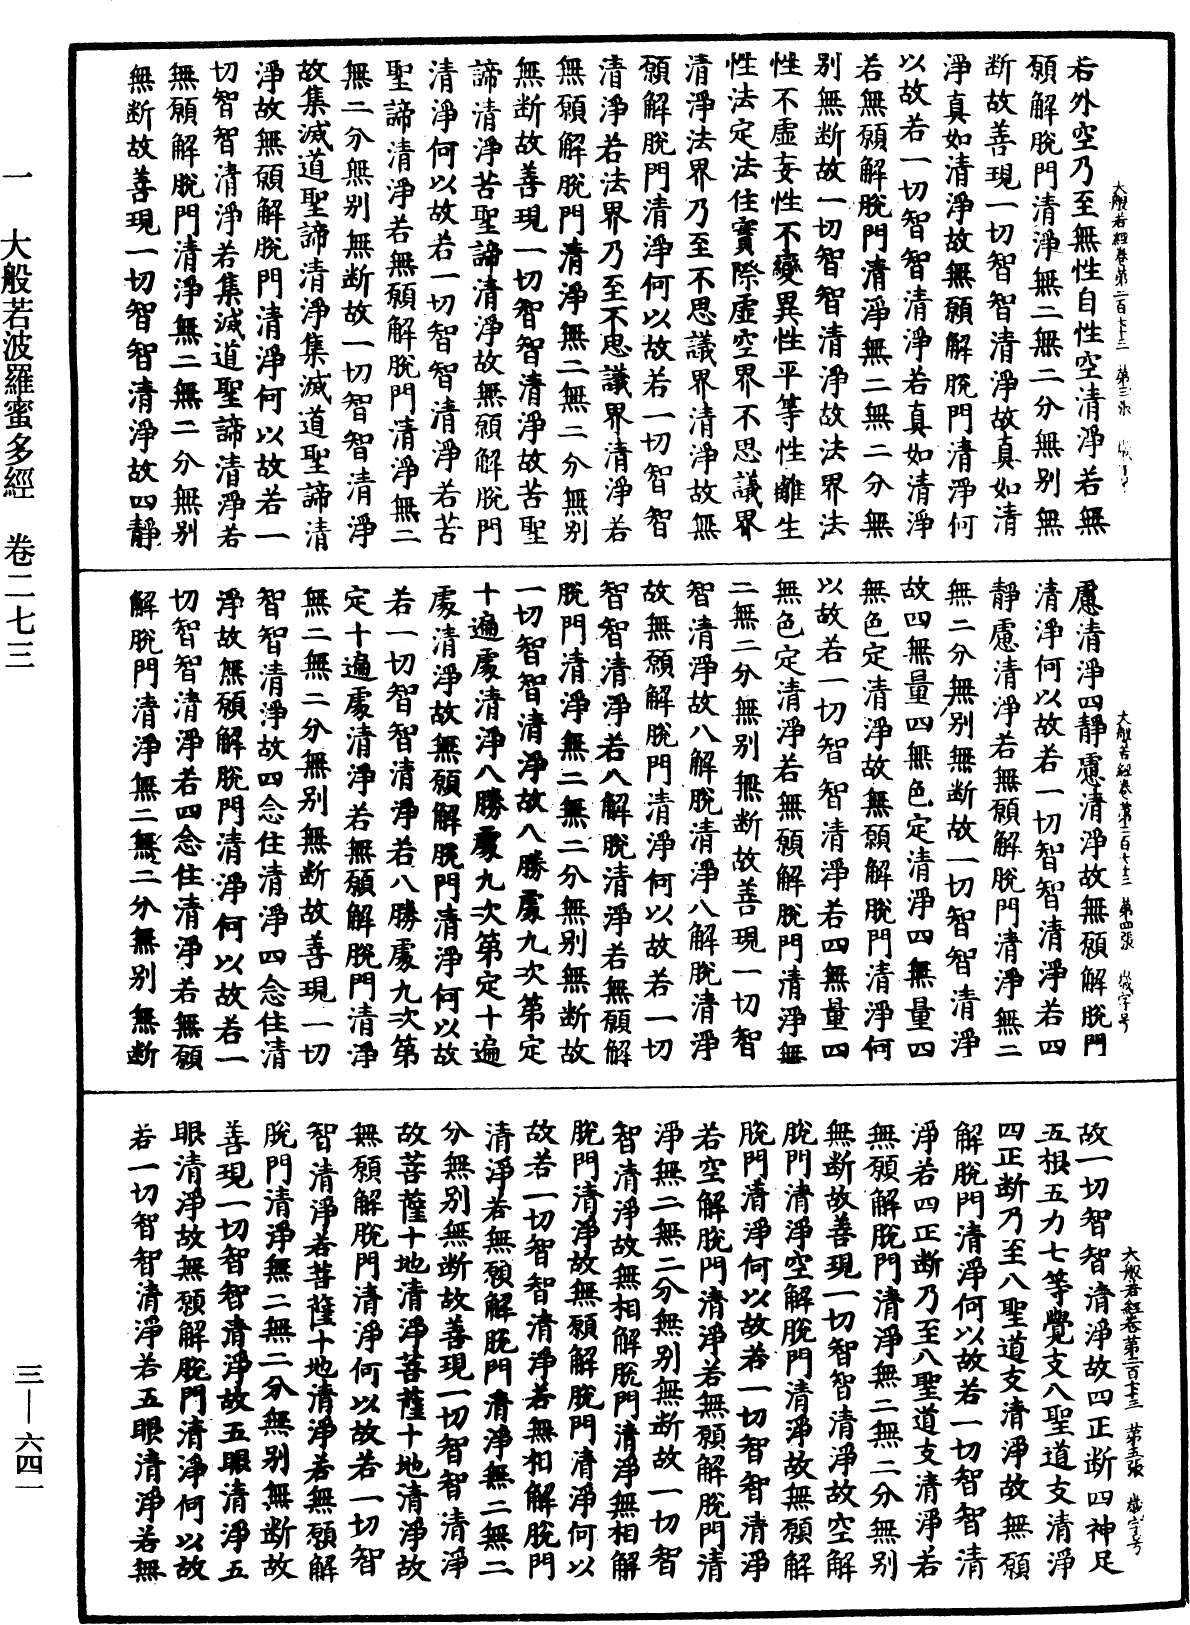 若外空乃至無性自性空清淨若無
願解脫門清淨無二無二分無別無
斷故善現一切智智清淨故真如清
淨真如清淨故無願解脫門清淨何
以故若一切智智清淨若真如清淨
若無願解脫門清淨無二無二分無
別無斷故一切智智清淨故法界法
性不虛妄性不變異性平等性離生
性法定法住實際虛空界不思議界
清淨法界乃至不思議界清淨故無
願解脫門清淨何以故若一切智智
清淨若法界乃至不思議界清淨若
無願解脫門清淨無二無二分無別
無斷故善現一切智智清淨故苦聖
諦清淨苦聖諦清淨故無願解脫門
清淨何以故若一切智智清淨若苦
聖諦清淨若無願解脫門清淨無二
無二分無別無斷故一切智智清淨
故集滅道聖諦清淨集滅道聖諦清
淨故無願解脫門清淨何以故若一
切智智清淨若集滅道聖諦清淨若
無願解脫門清淨無二無二分無別
無斷故善現一切智智清淨故四靜
大般若經卷第二百七十三 第三張
慮清淨四靜慮清淨故無願解脫門
清淨何以故若一切智智清淨若四
靜慮清淨若無願解脫門清淨無二
無二分無別無斷故一切智智清淨
故四無量四無色定清淨四無量四
無色定清淨故無願解脫門清淨何
以故若一切智智清淨若四無量四
無色定清淨若無願解脫門清淨無
二無二分無別無斷故善現一切智
智清淨故八解脫清淨八解脫清淨
故無願解脫門清淨何以故若一切
智智清淨若八解脫清淨若無願解
脫門清淨無二無二分無別無斷故
一切智智清淨故八勝處九次第定
十遍處清淨八勝處九次第定十遍
處清淨故無願解脫門清淨何以故
若一切智智清淨若八勝處九次第
定十遍處清淨若無願解脫門清淨
無二無二分無別無斷故善現一切
智智清淨故四念住清淨四念住清
淨故無願解脫門清淨何以故若一
切智智清淨若四念住清淨若無願
解脫門清淨無二無二分無別無斷
大般若經卷第二百七十三 第四張 字号
故一切智智清淨故四正斷四神足
五根五力七等覺支八聖道支清淨
四正斷乃至八聖道支清淨故無願
解脫門清淨何以故若一切智智清
淨若四正斷乃至八聖道支清淨若
無願解脫門清淨無二無二分無別
無斷故善現一切智智清淨故空解
脫門清淨空解脫門清淨故無願解
脫門清淨何以故若一切智智清淨
若空解脫門清淨若無願解脫門清
淨無二無二分無別無斷故一切智
智清淨故無相解脫門清淨無相解
脫門清淨故無願解脫門清淨何以
故若一切智智清淨若無相解脫門
清淨若無願解脫門清淨無二無二
分無別無斷故善現一切智智清淨
故菩薩十地清淨菩薩十地清淨故
無願解脫門清淨何以故若一切智
智清淨若菩薩十地清淨若無願解
脫門清淨無二無二分無別無斷故
善現一切智智清淨故五眼清淨五
眼清淨故無願解脫門清淨何以故
若一切智智清淨若五眼清淨若無
大般若經卷第二百七十三 第五張 字号
一 大般若波羅蜜多經 卷二七三
三—六四一